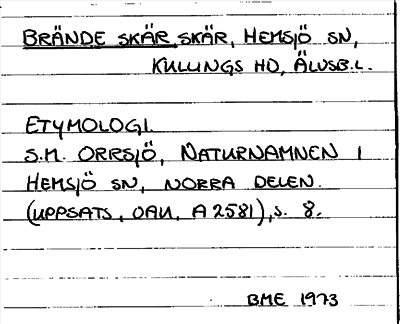 BRÄNDE SKÄR, SKÄR, HEMSJÖ SN,
KULLINGS HD, ÄLVSB.L.
ETYMOLOGI.
S.M. ORRSJÖ, NATURNAMNEN I
HEMSJÖ SN, NORRA DELEN.
(UPPSATS, OAU, A 2581), s. 8.
BME 1973